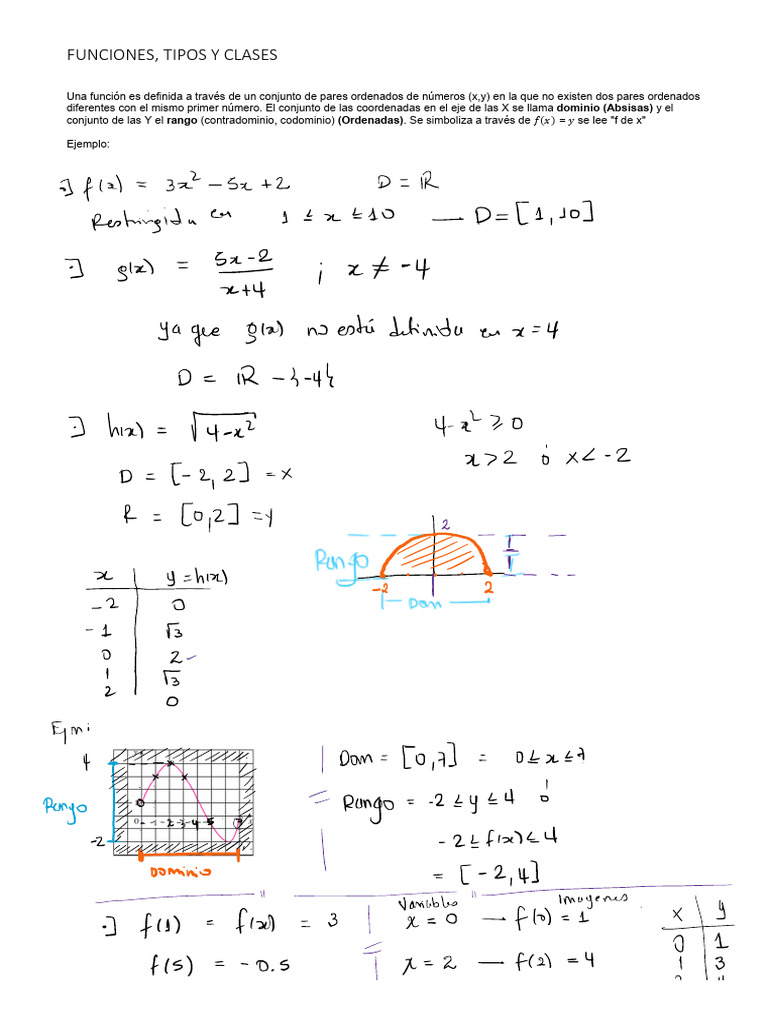 FUNCIONES, TIPOS Y CLASES
Una función es definida a través de un conjunto de pares ordenados de números (x,y) en la que no existen dos pares ordenados
diferentes con el mismo primer número. El conjunto de las coordenadas en el eje de las X se llama dominio (Absisas) y el
conjunto de las Y el rango (contradominio, codominio) (Ordenadas). Se simboliza a través de f(x) = y se lee "f de x"
Ejemplo:
.] f(x) = 3x² - 5x + 2 D = ℝ
Restringida en 1 ≤ x ≤ 10 — D = [1, 10]
:] g(x) = (5x - 2)/(x + 4) ; x ≠ -4
ya que g(x) no está definida en x = 4
D = ℝ - {-4}
:] h(x) = √(4 - x²) 4 - x² ≥ 0
x > 2 ó x < -2
D = [-2, 2] = x
R = [0, 2] = y
2
Rango
-2 2
Dom
x y = h(x)
-2 0
-1 √3
0 2
1 √3
2 0
Ejm:
4
Rango
-2
0 1 2 3 4 5 7
Dominio
Dom = [0, 7] = 0 ≤ x ≤ 7
Rango = -2 ≤ y ≤ 4 ó
-2 ≤ f(x) ≤ 4
= [-2, 4]
.] f(1) = f(x) = 3
f(5) = -0.5
Variables Imagenes
x = 0 — f(0) = 1
x = 2 — f(2) = 4
x y
0 1
1 3